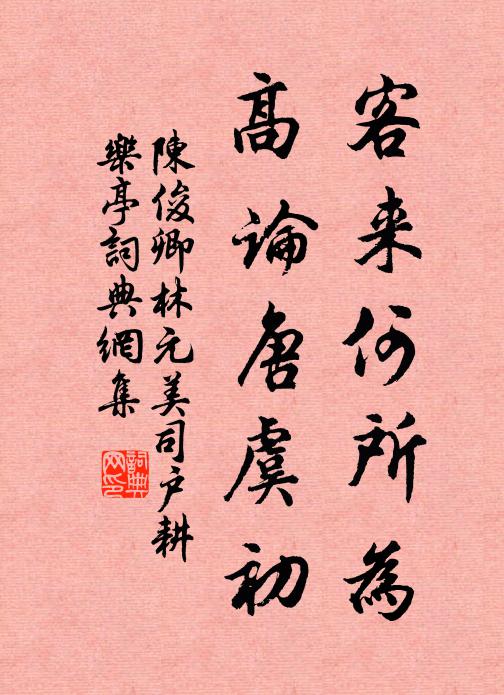 客来何所為
高論唐虞初
陳俊卿林元美司户耕
樂亭詞典網集
詞典网印